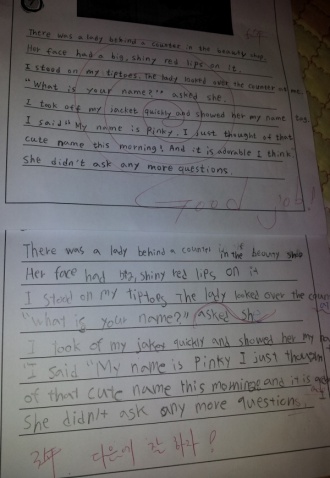 There was a lady behind a counter in the beauty shop.
Her face had a big, shiny red lips on it.
I stood on my tiptoes. The lady looked over the counter at me.
"What is your name?" asked she.
I took off my jacket quickly and showed her my name tag.
I said "My name is Pinky. I Just thought of that
cute name this morning! And it is adorable I think"
She didn't ask any more questions.
Good job!
There was a lady behind a counter in the beauty shop
Her face had big, shiny red lips on it
I stood on my tiptops The lady looked over the
"What is your name?" asked she
I look of my jaket quickly and showed her my
I said "My name is Pinky I Just
of that cute name this morninge and it is
She didn't ask any more questions.
다음에 잘 하자!